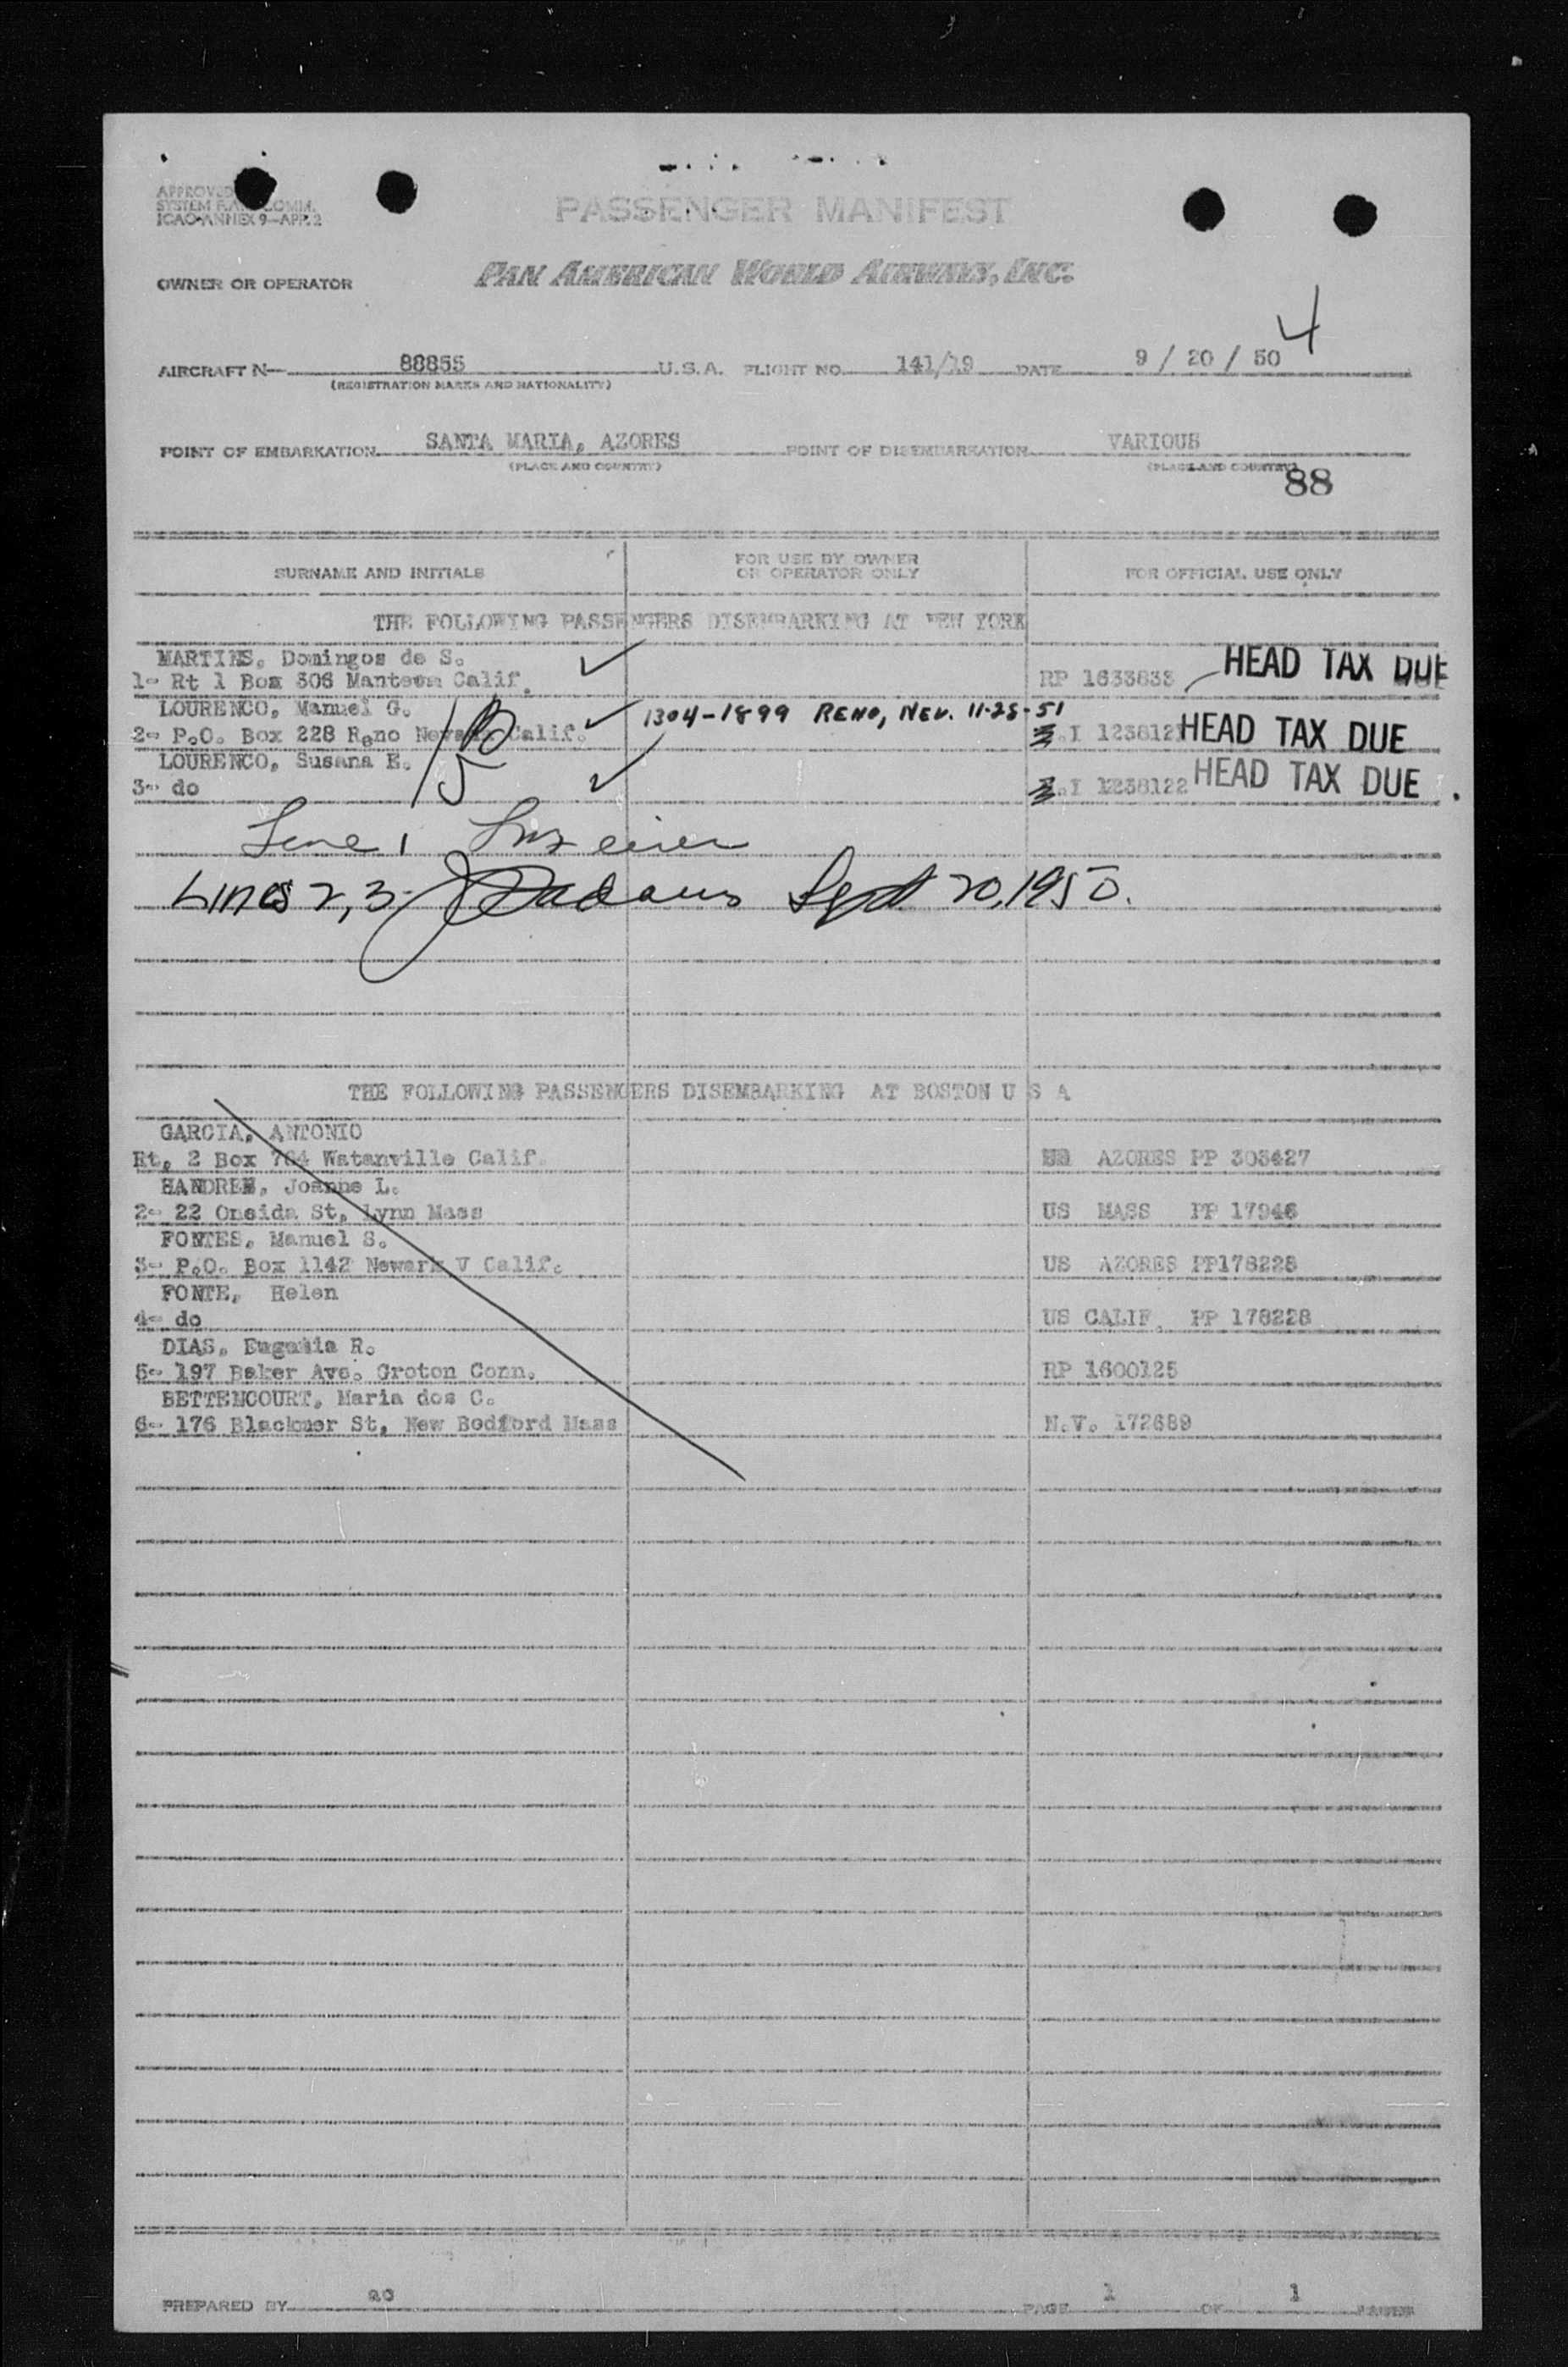 APPROVED
SYSTEM COMM.
ICAO ANNEX 9—APP. 2
PASSENGER MANIFEST
OWNER OR OPERATOR PAN AMERICAN WORLD AIRWAYS, INC.
4
AIRCRAFT N— 88855 U.S.A. FLIGHT NO. 141/19 DATE 9 / 20 / 50
(REGISTRATION MARKS AND NATIONALITY)
POINT OF EMBARKATION SANTA MARIA, AZORES POINT OF DISEMBARKATION VARIOUS
(PLACE AND COUNTRY) (PLACE AND COUNTRY)
88
SURNAME AND INITIALS FOR USE BY OWNER OR OPERATOR ONLY FOR OFFICIAL USE ONLY
THE FOLLOWING PASSENGERS DISEMBARKING AT NEW YORK
MARTINS, Domingos de S. HEAD TAX DUE
1- Rt 1 Box 306 Manteca Calif. RP 1633833
LOURENCO, Manuel G. 1304-1899 RENO, NEV. 11-28-51
2- P.O. Box 228 Reno Calif. I 123812 HEAD TAX DUE
LOURENCO, Susana E.
3- do 5 I 1238122 HEAD TAX DUE
Line 1
Lines 2, 3- Sept 20, 1950.
THE FOLLOWING PASSENGERS DISEMBARKING AT BOSTON U S A
GARCIA, ANTONIO
Rt, 2 Box 764 Watanville Calif. AZORES PP 303427
HANDREN, Joanne L.
2- 22 Oneida St, Lynn Mass US MASS PP 17946
FONTES, Manuel S.
3- P.O. Box 1142 Newark V Calif. US AZORES PP178228
FONTE, Helen
4- do US CALIF. PP 178228
DIAS, Eugenia R.
5- 197 Baker Ave. Groton Conn. RP 1600125
BETTENCOURT, Maria dos C.
6- 176 Blackmer St, New Bedford Mass N.V. 172689
PREPARED BY PAGE 1 OF 1 PAGES